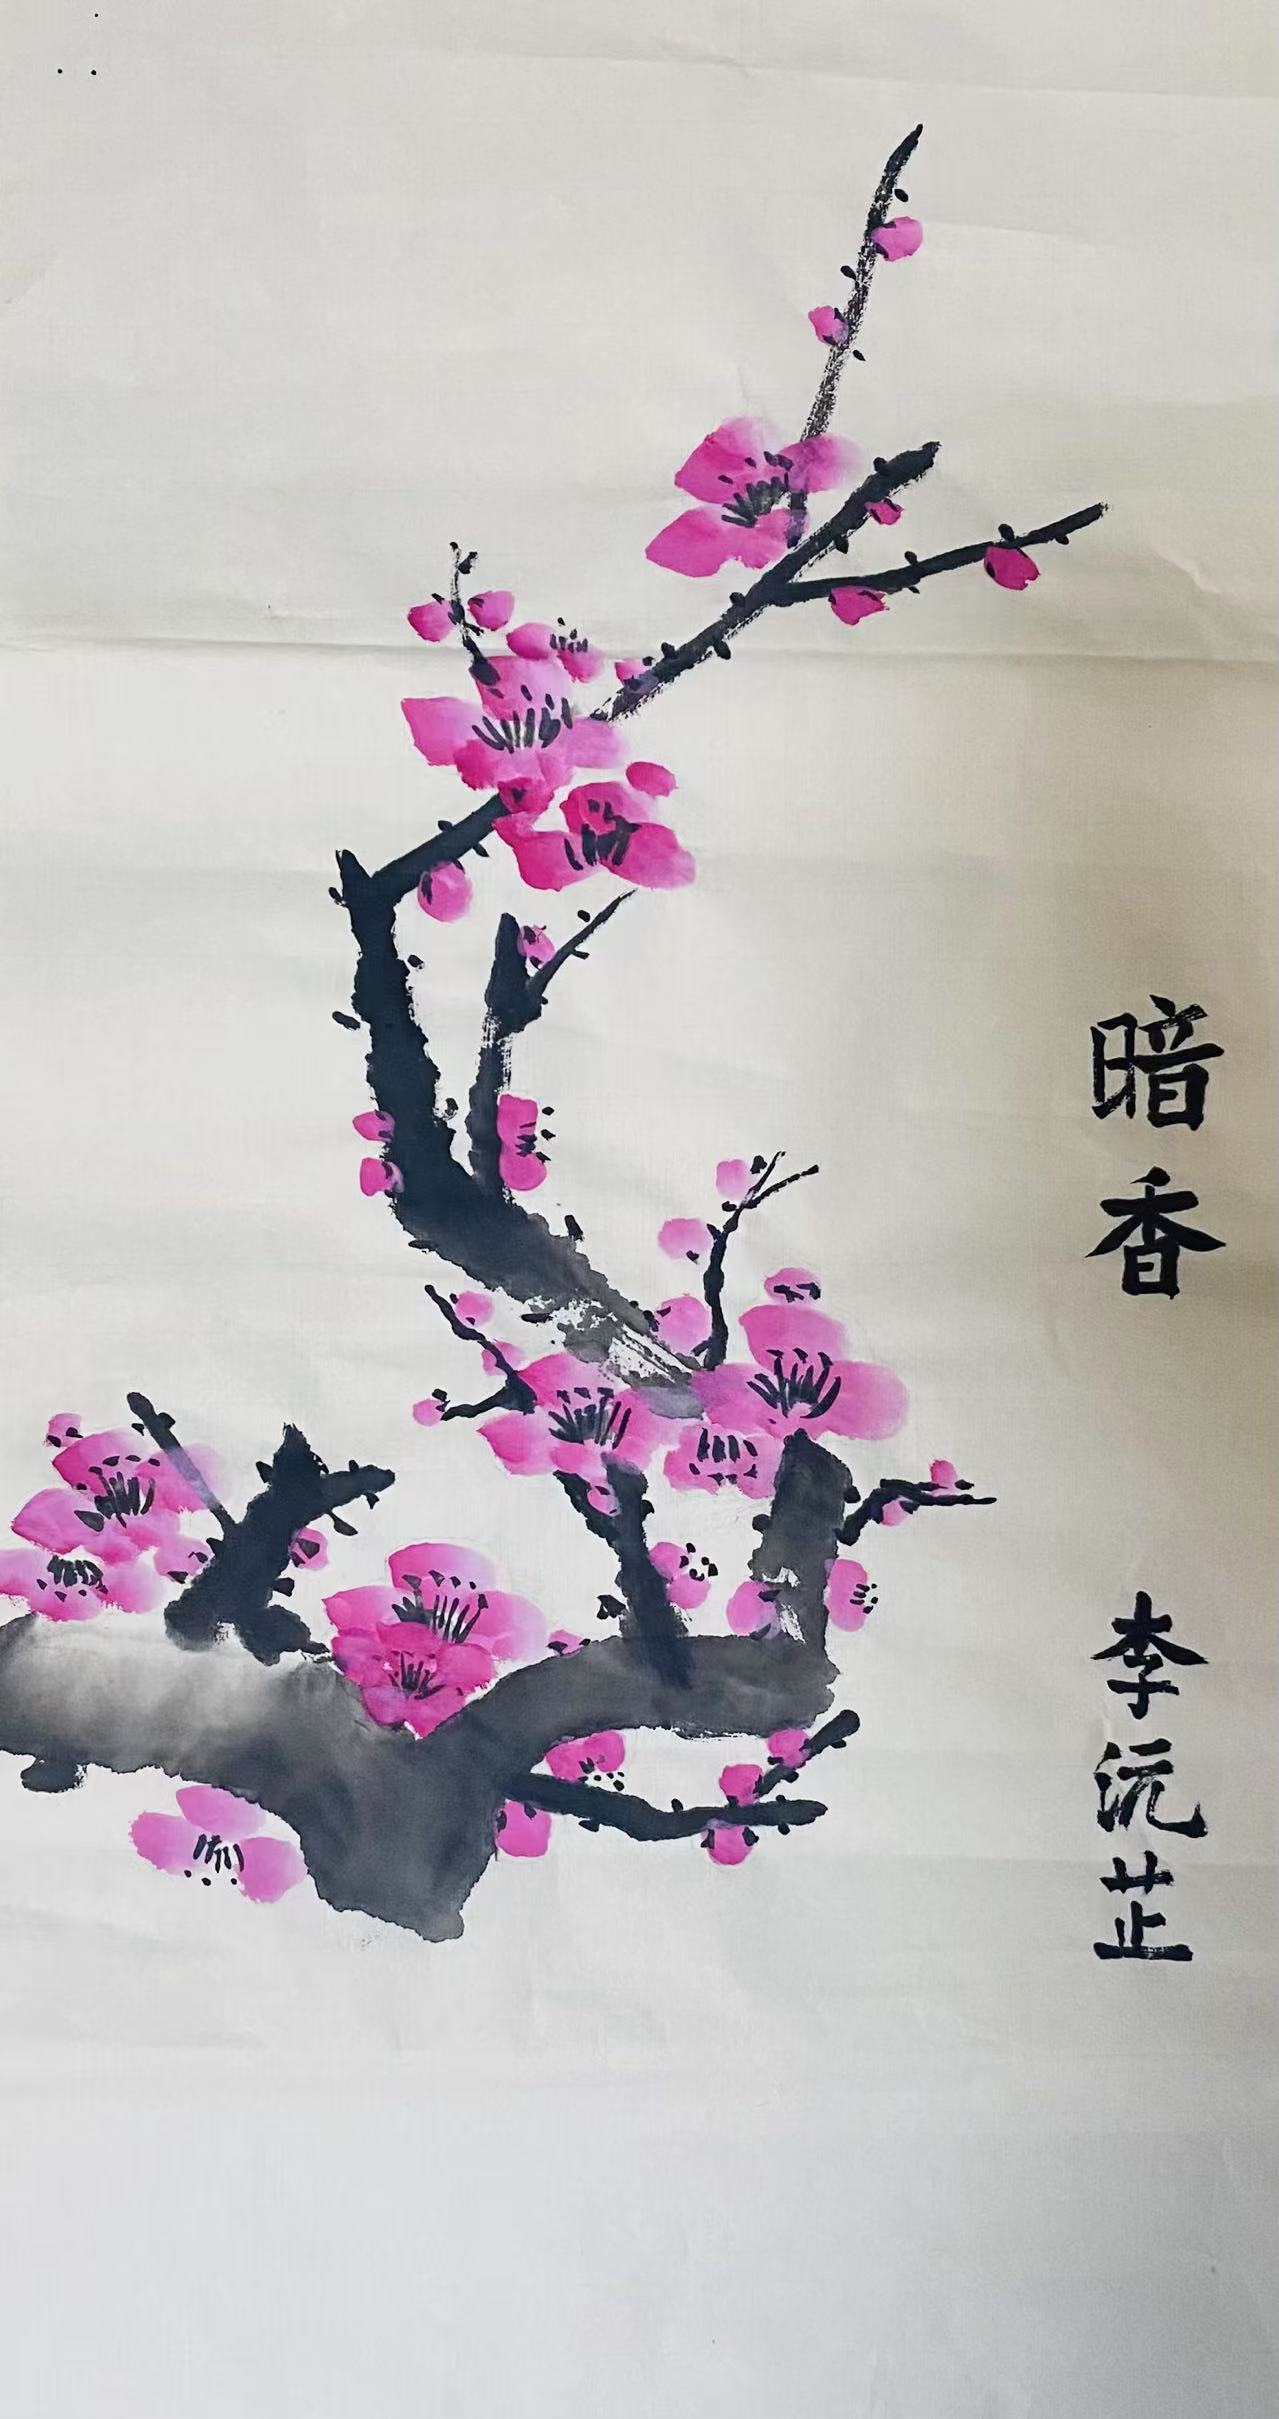 暗香
李沅芷